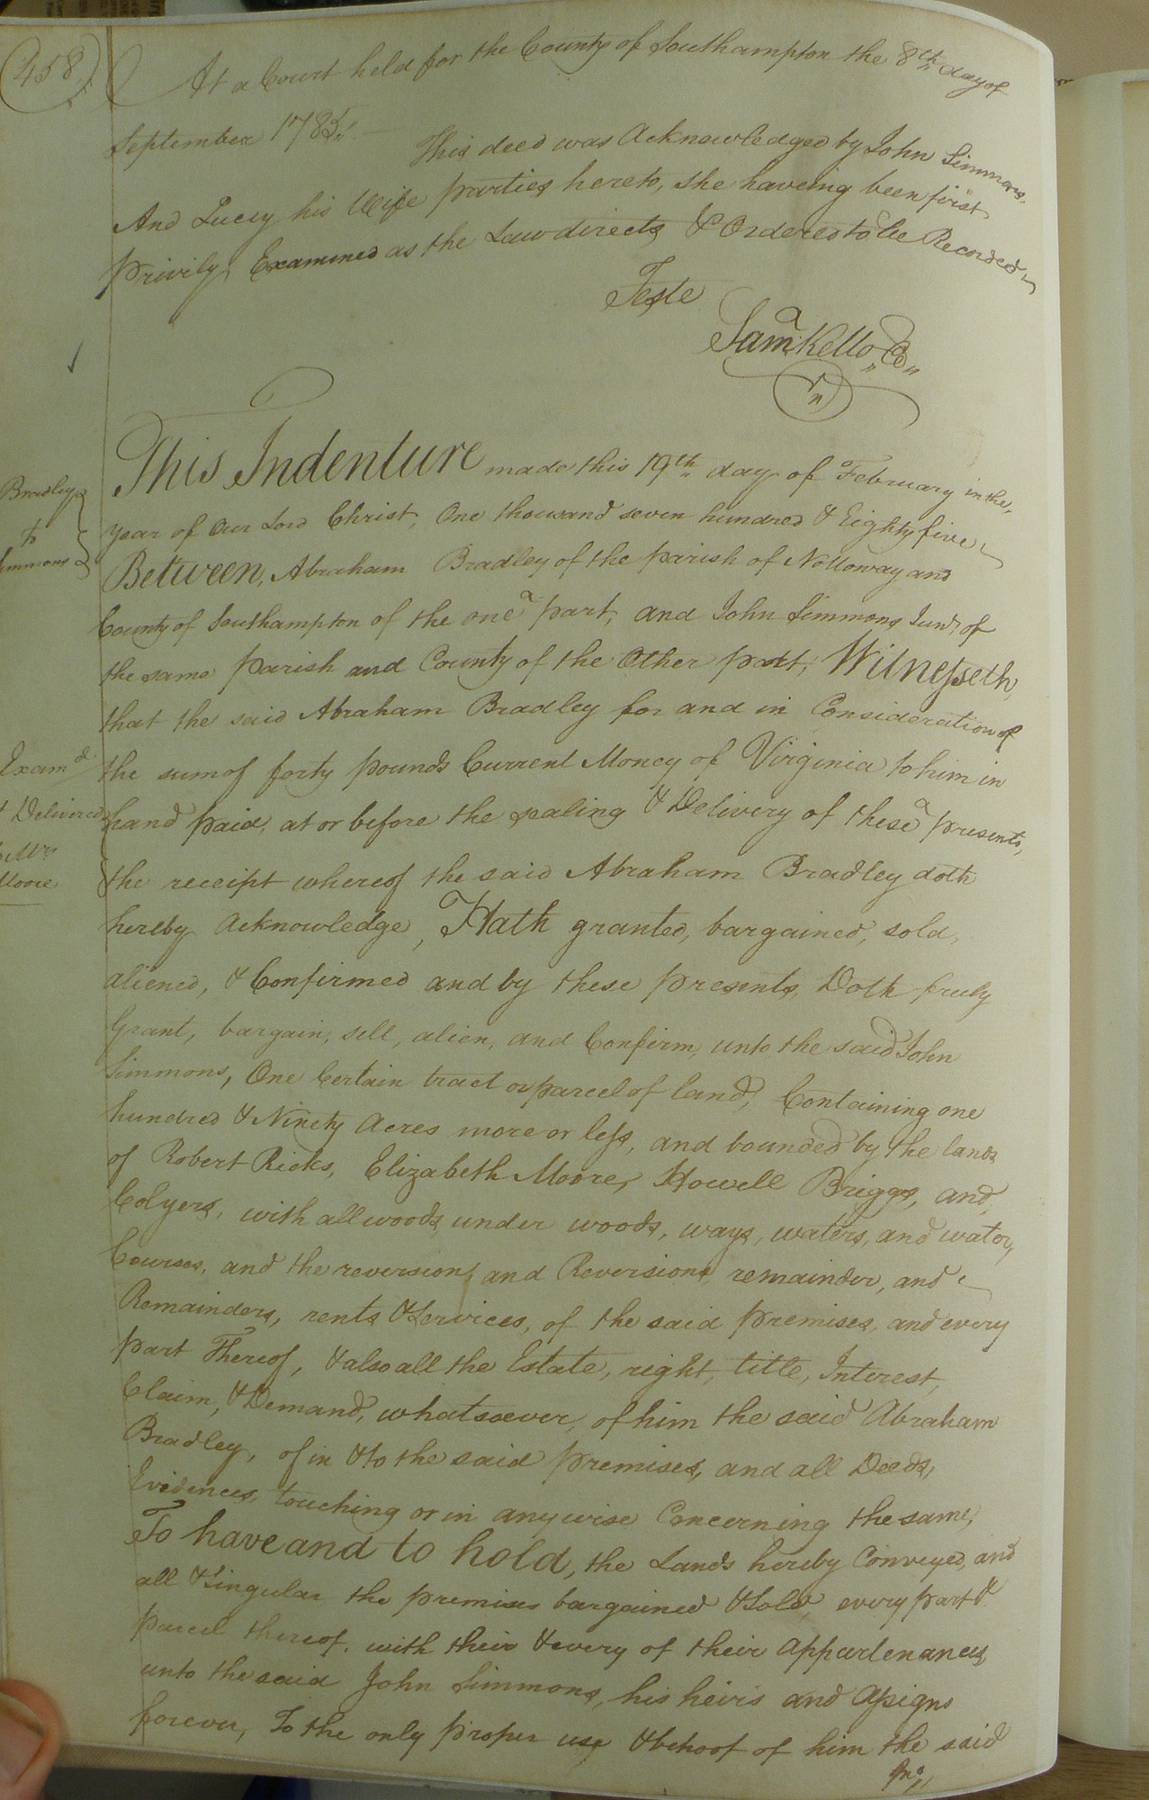 458
At a Court held for the County of Southampton the 8th day of
September 1785.
This deed was Acknowledged by John Simmons,
And Lucy his Wife parties hereto, she haveing been first
privily Examined as the Law directs & Ordered to be Recorded
Teste
Sam. Kello
This Indenture made this 19th day of February in the,
Bradley
year of Our Lord Christ, One thousand seven hundred & Eighty five
to
Simmons
Between, Abraham Bradley of the parish of Nottoway and
County of Southampton of the one part, and John Simmons Junr. of
the same parish and County of the Other part, Witnesseth,
that the said Abraham Bradley for and in Consideration of
Examd
the sum of forty pounds Current Money of Virginia to him in
& Delivered
hand paid, at or before the sealing & Delivery of these presents,
Moore
the receipt whereof the said Abraham Bradley doth
hereby Acknowledge, Hath granted, bargained, sold,
aliened, & Confirmed and by these presents Doth fruly
Grant, bargain, sell, alien, and Confirm, unto the said John
Simmons, One Certain tract or parcel of land, Containing one
hundred & Ninety Acres more or less, and bounded by the lands
of Robert Ricks, Elizabeth Moore, Howell Briggs, and,
Colyers, with all woods, under woods, ways, waters, and water,
Courses, and the reversion, and Reversions, remainder, and
Remainders, rents & Services, of the said premises, and every
part Thereof, & also all the Estate, right, title, Interest,
Claim, & Demand, whatsoever, of him the said Abraham
Bradley, of in & to the said premises, and all Deeds,
Evidences, touching or in anywise Concerning the same,
To have and to hold, the Lands hereby Conveyed, and
all & Singular the premises bargained & Sold, every part &
parcel thereof, with their & every of their Appurtenances
unto the said John Simmons, his heirs and Assigns
forever, To the only proper use & behoof of him the said
Jno,,